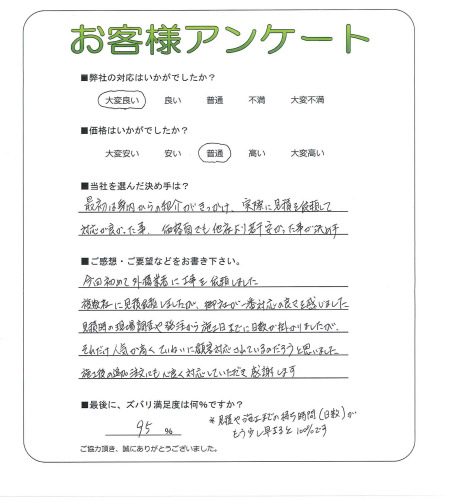 お客様アンケート
■弊社の対応はいかがでしたか？
大変良い 良い 普通 不満 大変不満
■価格はいかがでしたか？
大変安い 安い 普通 高い 大変高い
■当社を選んだ決め手は？
最初は身内からの紹介がきっかけ、実際に見積を依頼して
対応が良かった事、価格面でも他店より若干安かった事が決め手
■ご感想・ご要望などをお書き下さい。
今回初めて外構業者に工事を依頼しました
複数社に見積依頼しましたが、御社が一番対応の良さを感いました
見積時の現場調査や発注から施工日までに日数が掛かりましたが、
それだけ人気が高くていねいに顧客対応されているのだろうと思いました
施工後の追加注文にも心良く対応していただき感謝します
■最後に、ズバリ満足度は何％ですか？
95 ％
＊見積や施工までの待ち時間（日数）が
もう少し早まると100％です
ご協力頂き、誠にありがとうございました。